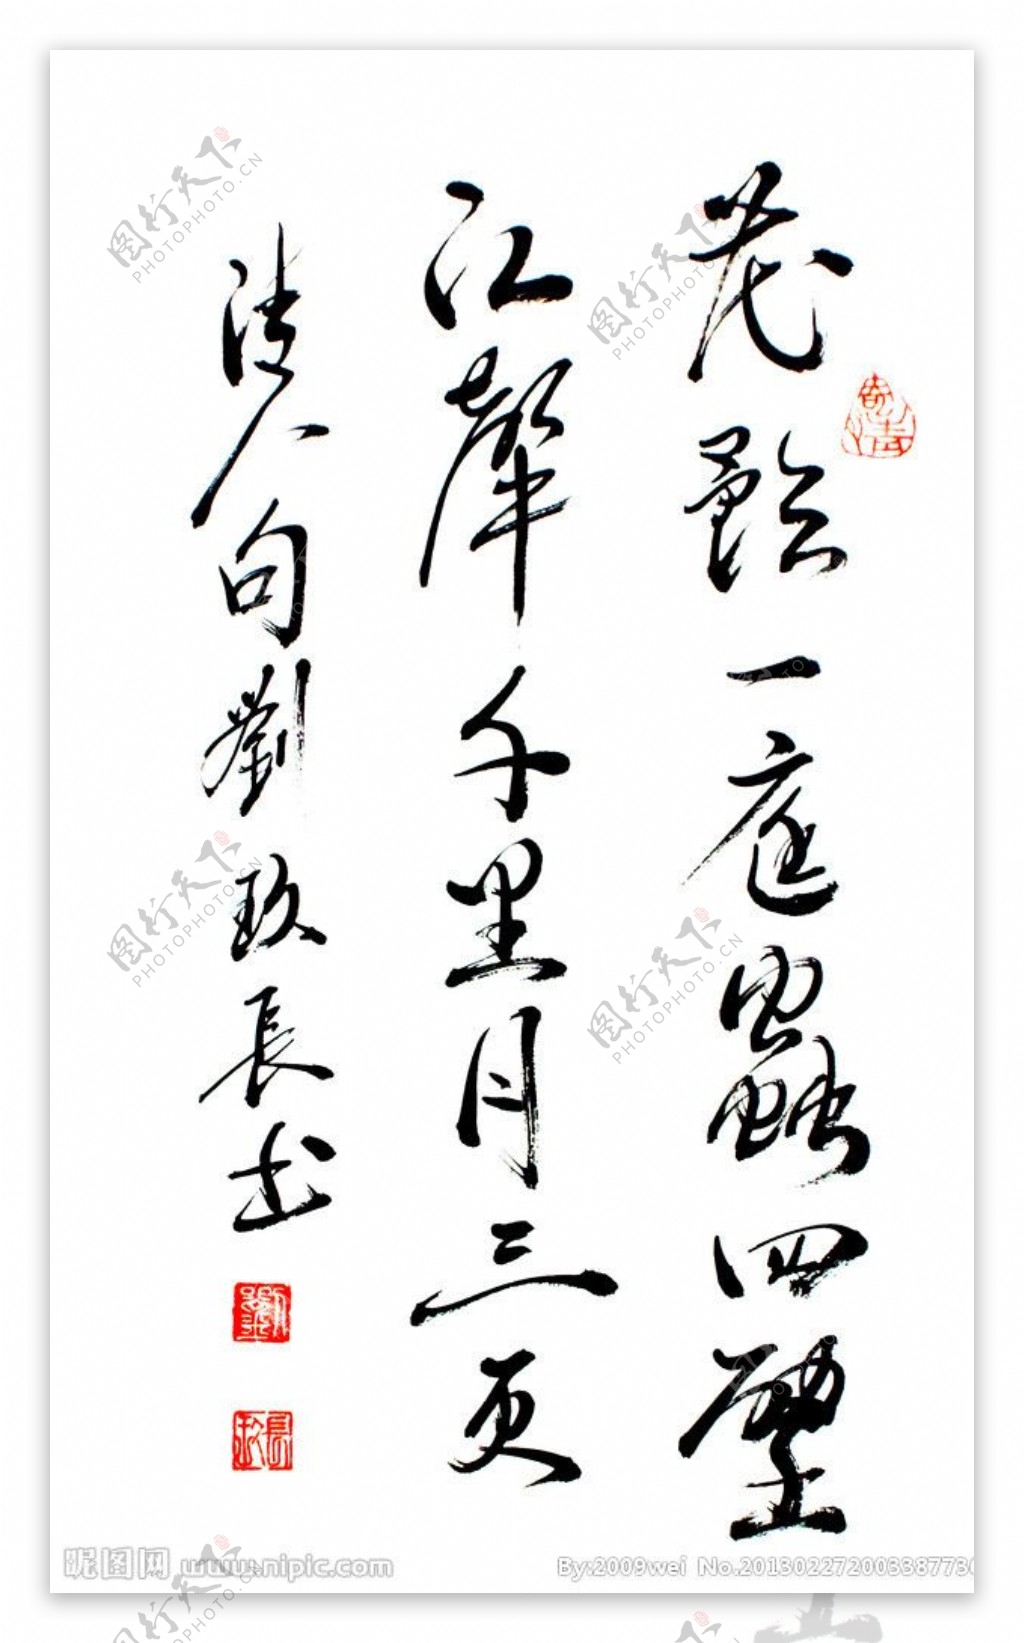 花影一庭蟲四壁
江聲千里月三更
清人句劉玖長书
昵图网 www.nipic.com
By:2009wei No.2013022720033877
图行天下
PHOTOPHOTO.CN
图行天下
PHOTOPHOTO.CN
图行天下
PHOTOPHOTO.CN
图行天下
PHOTOPHOTO.CN